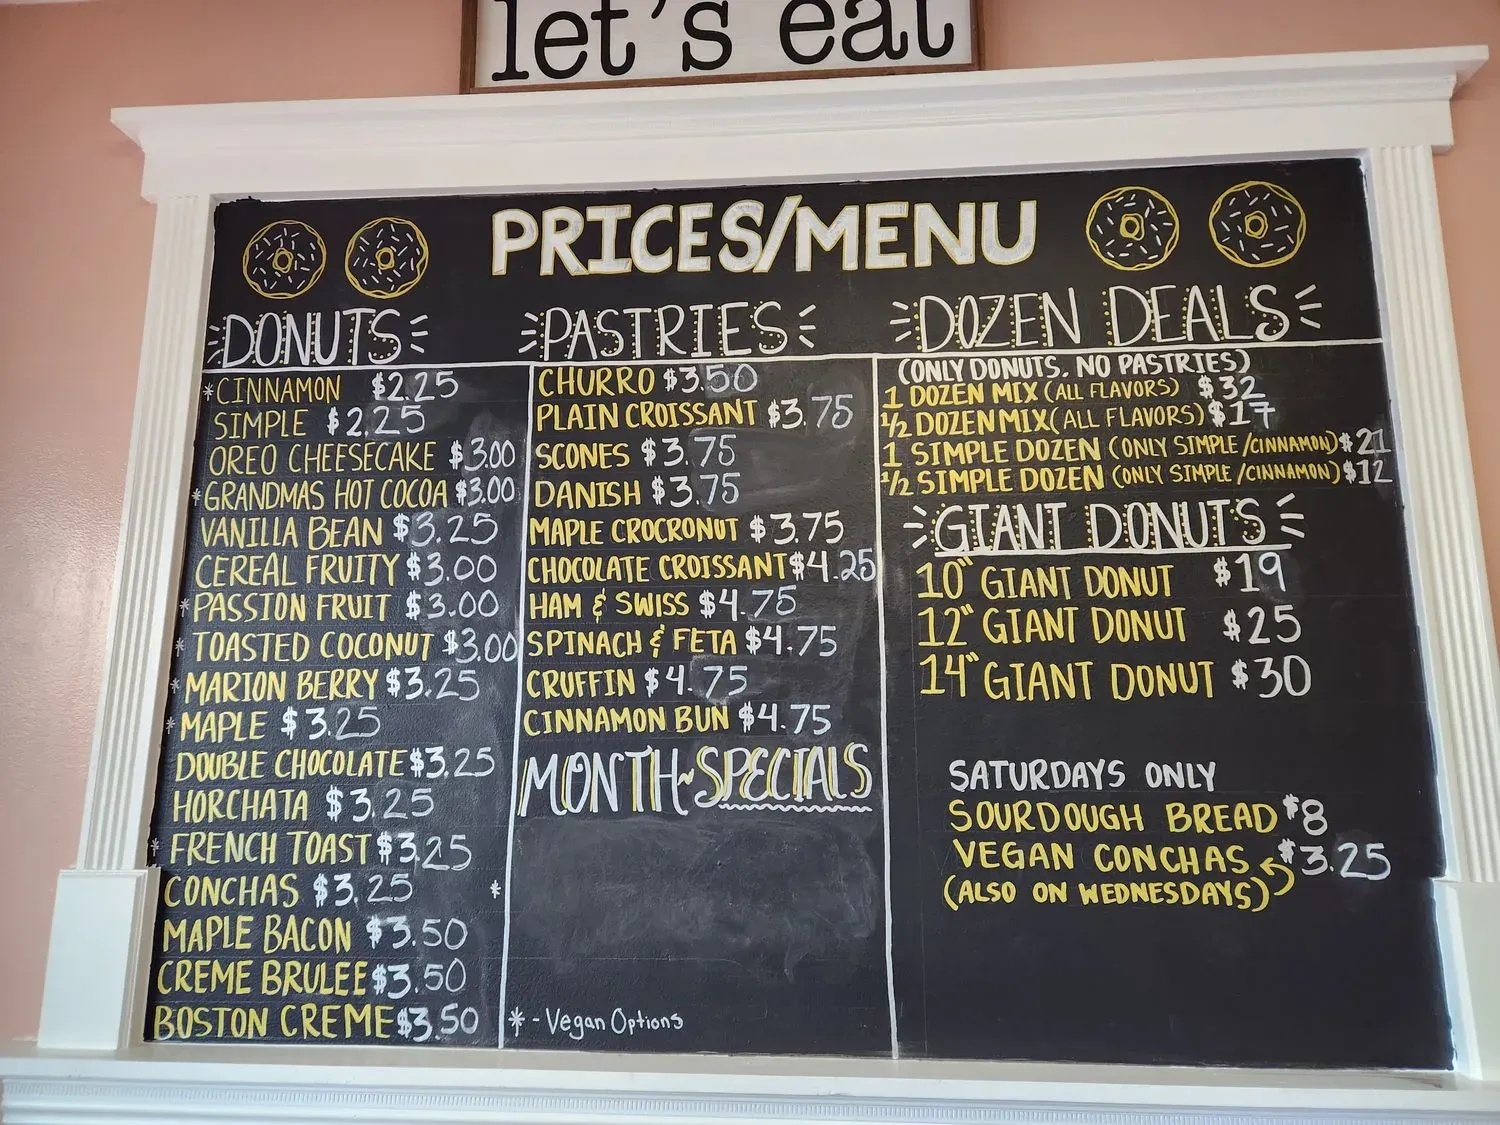 let's eat
PRICES/MENU
DONUTS
*CINNAMON $2.25
SIMPLE $2.25
OREO CHEESECAKE $3.00
*GRANDMAS HOT COCOA $3.00
VANILLA BEAN $3.25
CEREAL FRUITY $3.00
*PASSION FRUIT $3.00
*TOASTED COCONUT $3.00
*MARION BERRY $3.25
*MAPLE $3.25
DOUBLE CHOCOLATE $3.25
HORCHATA $3.25
*FRENCH TOAST $3.25
CONCHAS $3.25 *
MAPLE BACON $3.50
CREME BRULEE $3.50
BOSTON CREME $3.50
PASTRIES
CHURRO $3.50
PLAIN CROISSANT $3.75
SCONES $3.75
DANISH $3.75
MAPLE CROCRONUT $3.75
CHOCOLATE CROISSANT $4.25
HAM & SWISS $4.75
SPINACH & FETA $4.75
CRUFFIN $4.75
CINNAMON BUN $4.75
MONTH~SPECIALS
* - Vegan Options
DOZEN DEALS
(ONLY DONUTS, NO PASTRIES)
1 DOZEN MIX (ALL FLAVORS) $32
1/2 DOZEN MIX (ALL FLAVORS) $17
1 SIMPLE DOZEN (ONLY SIMPLE/CINNAMON) $21
1/2 SIMPLE DOZEN (ONLY SIMPLE/CINNAMON) $12
GIANT DONUTS
10" GIANT DONUT $19
12" GIANT DONUT $25
14" GIANT DONUT $30
SATURDAYS ONLY
SOURDOUGH BREAD $8
VEGAN CONCHAS $3.25
(ALSO ON WEDNESDAYS)